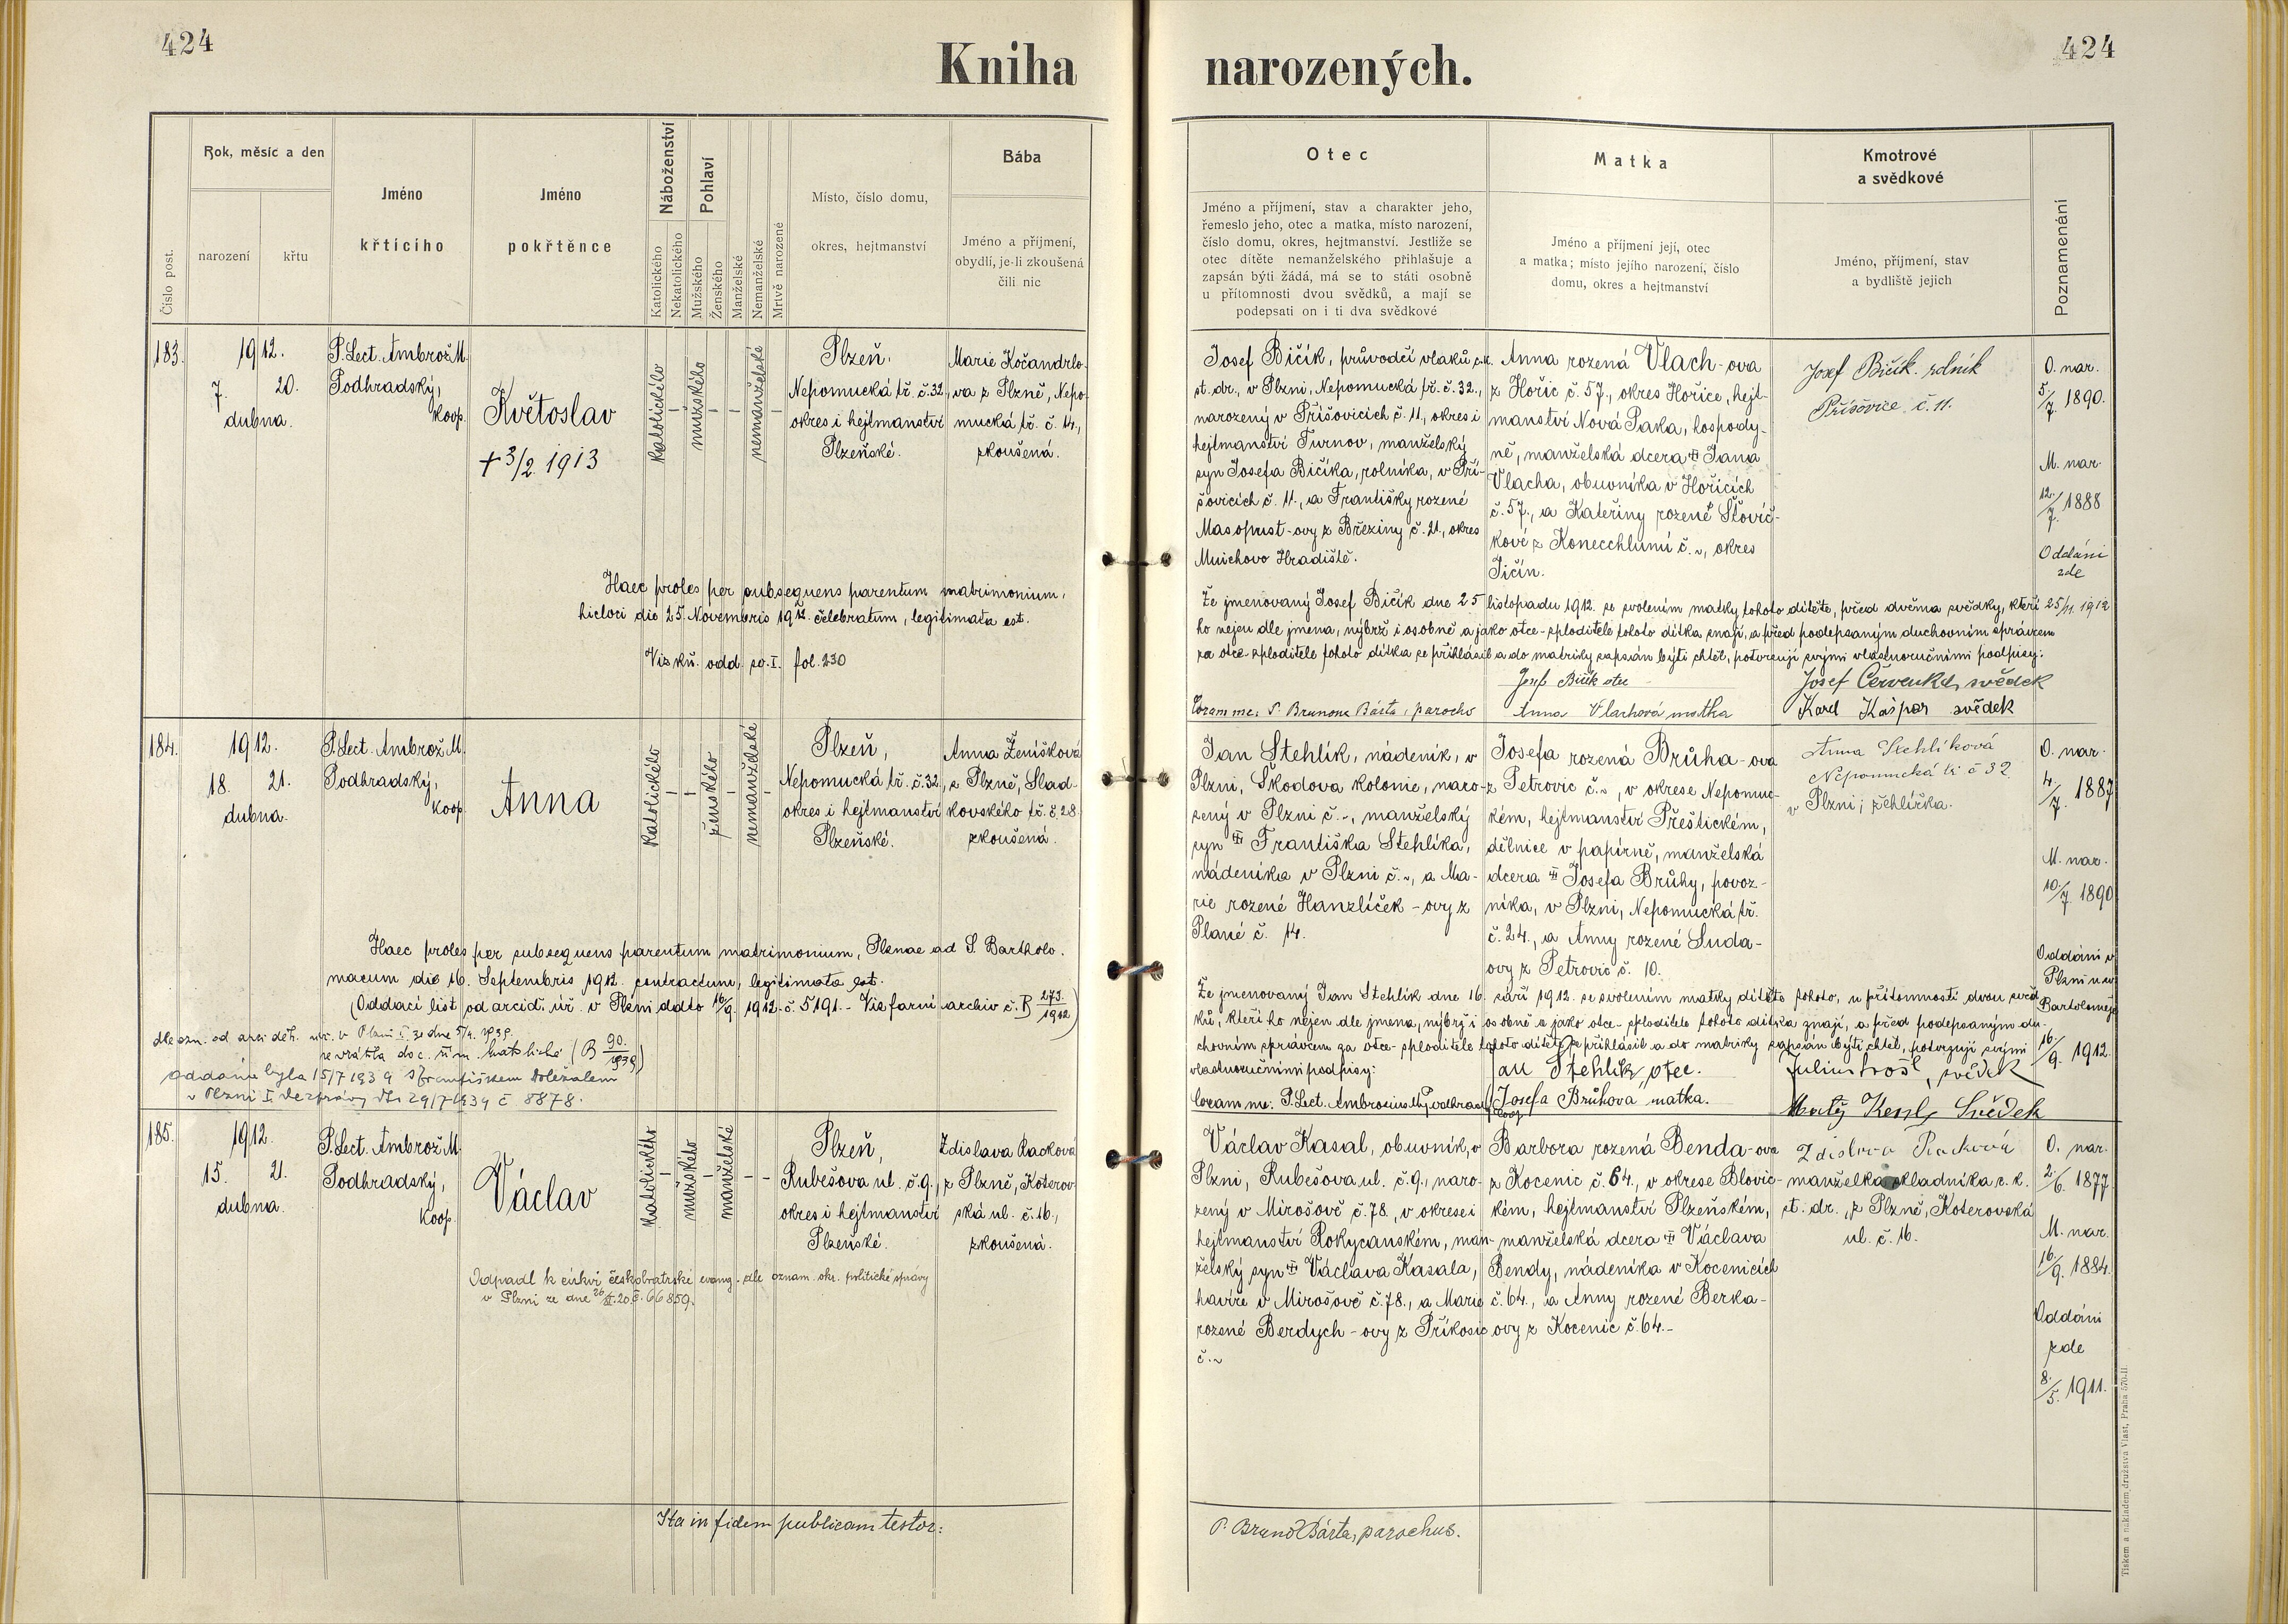 424
Kniha narozených.
424
Číslo post.
Rok, měsíc a den
narození
křtu
Jméno
křtícího
Jméno
pokřtěnce
Náboženství
Katolického
Nekatolického
Pohlaví
Mužského
Ženského
Manželské
Nemanželské
Mrtvě narozené
Místo, číslo domu,
okres, hejtmanství
Bába
Jméno a příjmení,
obydlí, je-li zkoušená
čili nic
Otec
Jméno a příjmení, stav a charakter jeho,
řemeslo jeho, otec a matka, místo narození,
číslo domu, okres, hejtmanství. Jestliže se
otec dítěte nemanželského přihlašuje a
zapsán býti žádá, má se to státi osobně
u přítomnosti dvou svědků, a mají se
podepsati on i ti dva svědkové
Matka
Jméno a příjmení její, otec
a matka; místo jejího narození, číslo
domu, okres a hejtmanství
Kmotrové
a svědkové
Jméno, příjmení, stav
a bydliště jejich
Poznamenání
183.
1912.
7. 20.
dubna.
P. Lect. Ambrož M.
Podhradský,
koop.
Květoslav
+ 3/2. 1913
katolického
–
mužského
–
–
nemanželské
–
Plzeň,
Nepomucká tř. č. 32,
okres i hejtmanství
Plzeňské.
Marie Kočandrlo-
va z Plzně, Nepo-
mucká tř. č. 14.,
zkoušená.
Haec proles per subsequens parentum matrimonium,
hicloci die 25. Novembris 1912. celebratum, legitimata est.
Viz kn. odd. sv. I. fol. 230
Josef Bičík, průvodčí vlaků c.k.
st. dr., v Plzni, Nepomucká tř. č. 32.,
narozený v Příšovicích č. 11., okres i
hejtmanství Turnov, manželský
syn Josefa Bičíka, rolníka, v Pří-
šovicích č. 11., a Františky rozené
Masopust-ovy z Březiny č. 21., okres
Mnichovo Hradiště.
Anna rozená Vlach-ova
z Hořic č. 57., okres Hořice, hejt-
manství Nová Paka, hospody-
ně, manželská dcera Jana
Vlacha, obuvníka v Hořicích
č. 57., a Kateřiny rozené Šťovíč-
kové z Konecchlumí č. ~, okres
Jičín.
Josef Bičík rolník
Příšovice č. 11.
O. nar.
5/7. 1890.
M. nar.
12./7. 1888
Oddáni
zde
25/11. 1912
Že jmenovaný Josef Bičík dne 25. listopadu 1912. se svolením matky tohoto dítěte, před dvěma svědky, kteří
ho nejen dle jmena, nýbrž i osobně a jako otce-sploditele tohoto dítka znají, a před podepsaným duchovním správcem
za otce-sploditele tohoto dítka se přihlásil a do matriky zapsán býti chtěl, potvrzují svými vlastnoručními podpisy:
Josef Bičík otec
Josef Červenka, svědek
Coram me: P. Brunone Bárta, parocho
Anna Vlachová matka
Karel Kašpar svědek
184.
1912.
18. 21.
dubna.
P. Lect. Ambrož M.
Podhradský,
koop.
Anna
katolického
–
–
ženského
–
nemanželské
–
Plzeň,
Nepomucká tř. č. 32.,
okres i hejtmanství
Plzeňské.
Anna Ženíšková
z Plzně, Slad-
kovského tř. č. 28.
zkoušená.
Haec proles per subsequens parentum matrimonium, Plsnae ad S. Bartholo-
maeum die 16. Septembris 1912. contractum, legitimata est.
(Oddací list od arciděk. úř. v Plzni ddto 16/9. 1912. č. 5191. - Viz farní archiv č. B 273./1912)
dle ozn. od arci děk. úřa. v Plzni I. ze dne 5/4. 1939.
se vrátila do c. řím. katolické (B 90./1939)
oddána byla 15/7 1939 s Františkem Doležalem
v Plzni I. dle zprávy dto 29/7 1939 č 8878.
Jan Stehlík, nádeník, v
Plzni, Škodova kolonie, naro-
zený v Plzni č. ~, manželský
syn Františka Stehlíka,
nádeníka v Plzni č. ~, a Ma-
rie rozené Hanzlíček-ovy z
Plané č. 14.
Josefa rozená Brůha-ova
z Petrovic č. ~, v okrese Nepomuc-
kém, hejtmanství Přeštickém,
dělnice v papírně, manželská
dcera Josefa Brůhy, povoz-
níka, v Plzni, Nepomucká tř.
č. 24., a Anny rozené Suda-
ovy z Petrovic č. 10.
Anna Stehlíková
Nepomucká tř. č 32
v Plzni, žehlířka.
O. nar.
4./7. 1887
M. nar.
10./7. 1890
Oddáni v
Plzni u sv.
Bartoloměje
16./9. 1912.
Že jmenovaný Jan Stehlík dne 16. září 1912. se svolením matky dítěte tohoto, u přítomnosti dvou svěd-
ků, kteří ho nejen dle jmena, nýbrž i osobně a jako otce-sploditele tohoto dítka znají, a před podepsaným du-
chovním správcem za otce-sploditele tohoto dítěte se přihlásil a do matriky zapsán býti chtěl, potvrzují svými
vlastnoručními podpisy:
Jan Stehlík, otec.
svědek
Coram me: P. Lect. Ambrosius M. Podhradský, coop.
Josefa Brůhova matka.
Svědek
185.
1912.
15. 21.
dubna.
P. Lect. Ambrož M.
Podhradský,
koop.
Václav
katolického
–
mužského
–
manželské
–
–
Plzeň,
Rubešova ul. č. 9.,
okres i hejtmanství
Plzeňské.
Zdislava Racková
z Plzně, Koterov-
ská ul. č. 16.,
zkoušená.
Odpadl k církvi českobratrské evang. dle oznam. okr. politické správy
v Plzni ze dne 26/XI. 20 č. 66859.
Václav Kasal, obuvník, v
Plzni, Rubešova ul. č. 9., naro-
zený v Mirošově č. 78., v okrese i
hejtmanství Rokycanském, man-
želský syn Václava Kasala,
havíře v Mirošově č. 78., a Marie
rozené Berdych-ovy z Příkosic
č. ~
Barbora rozená Benda-ova
z Kocenic č. 64., v okrese Blovic-
kém, hejtmanství Plzeňském,
manželská dcera Václava
Bendy, nádeníka v Kocenicích
č. 64., a Anny rozené Berka-
ovy z Kocenic č. 64.-
Zdislava Racková
manželka skladníka c. k.
st. dr., z Plzně, Koterovská
ul. č. 16.
O. nar.
2./6. 1877.
M. nar.
16./9. 1884.
Oddáni
zde
8./5. 1911.
Ita in fidem publicam testor:
P. Bruno Bárta, parochus.
Tiskem a nákladem družstva Vlast, Praha 570-II.